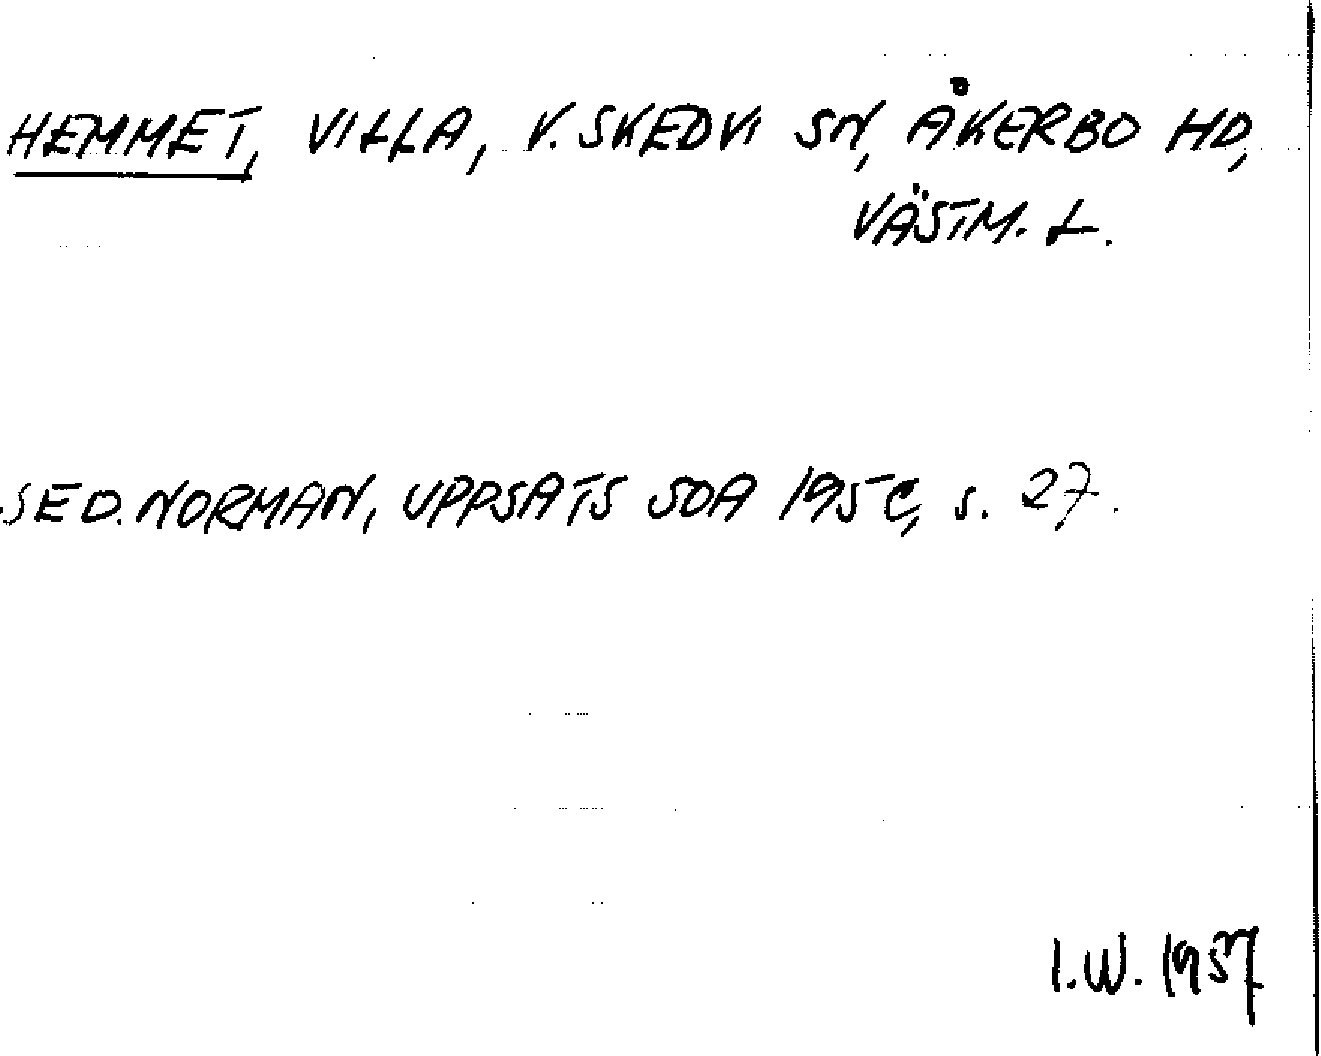 HEMMET, VILLA, V. SKEDVI SN, ÅKERBO HD,
VÄSTM. L.
SE D. NORMAN, UPPSATS SOA 195 C, s. 27.
I.W. 1957